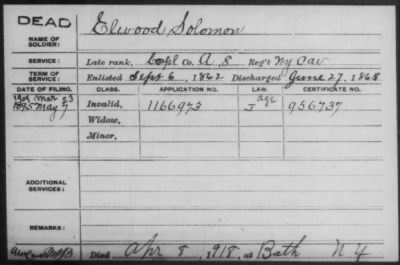 DEAD
NAME OF SOLDIER:
Elwood Solomon
SERVICE:
Late rank, Corpl Co. A, 8 Reg't Ny Cav
TERM OF SERVICE:
Enlisted Sept 6, 1862 Discharged June 27, 1865
DATE OF FILING. CLASS. APPLICATION NO. LAW. CERTIFICATE NO.
1904 Mar 23
1895 May 7 Invalid, 1166975 J age 956737
Widow,
Minor,
ADDITIONAL SERVICES:
REMARKS:
Died Apr 8, 1918, at Bath N Y